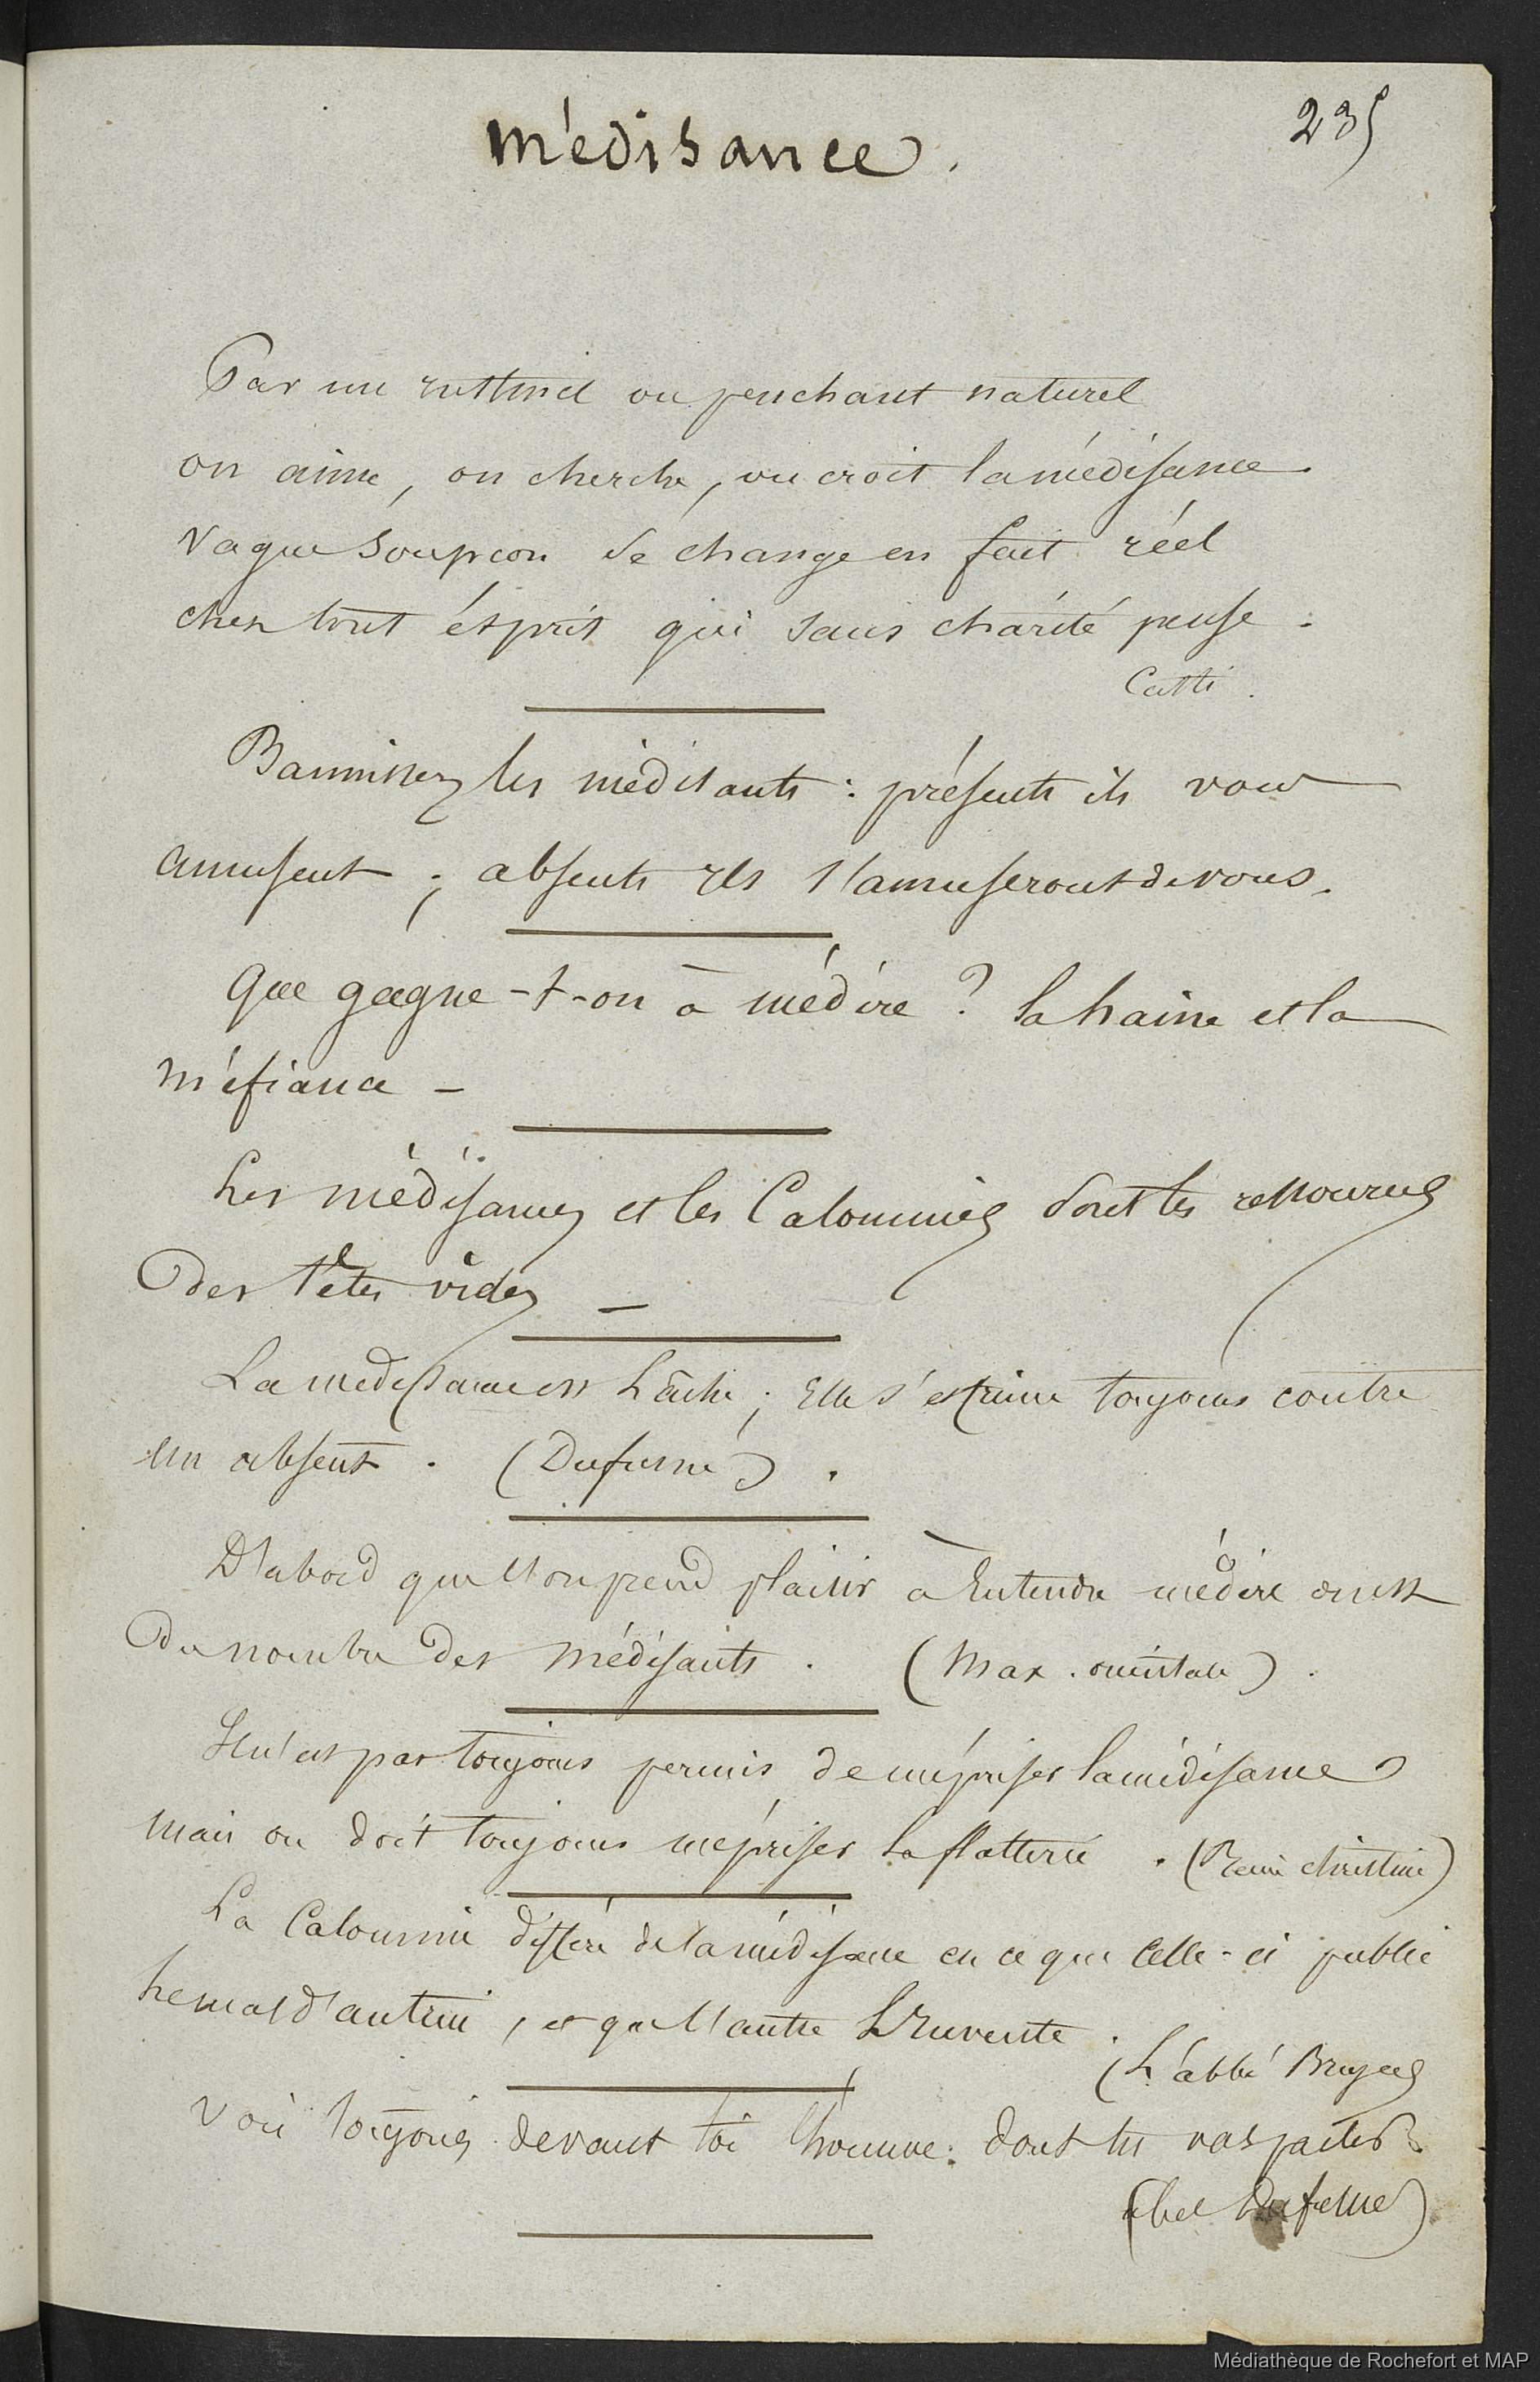 235
Médisance.
Par un instinct ou penchant naturel
on aime, on cherche, on croit la médisance
vague soupçon se change en fait réel
chez tout ésprit qui sans charité pense.
Casti.
Bannissez les médisants : présents ils vous
amusent ; absents ils s'amuseront de vous.
Que gagne-t-on à médire ? la haine et la
méfiance -
Les médisances et les Calomnies sont les ressources
des têtes vides -
La médisance est Lâche ; Elle s'escrime toujours contre
un absent. (Dufresne).
D'abord que l'on prend plaisir à Entendre médire on est
du nombre des médisants. (Max. orientale).
Il n'est pas toujours permis de mépriser la médisance
mais on doit toujours mépriser la flatterie. (Reine christine)
La Calomnie diffère de la médisance en ce que Celle-ci publie
le mal d'autrui, et que l'autre L'invente.
(L'abbé Bruyeres
Voie toujours devant toi l'homme dont tu vas parler
(abel Dufresne)
Médiathèque de Rochefort et MAP